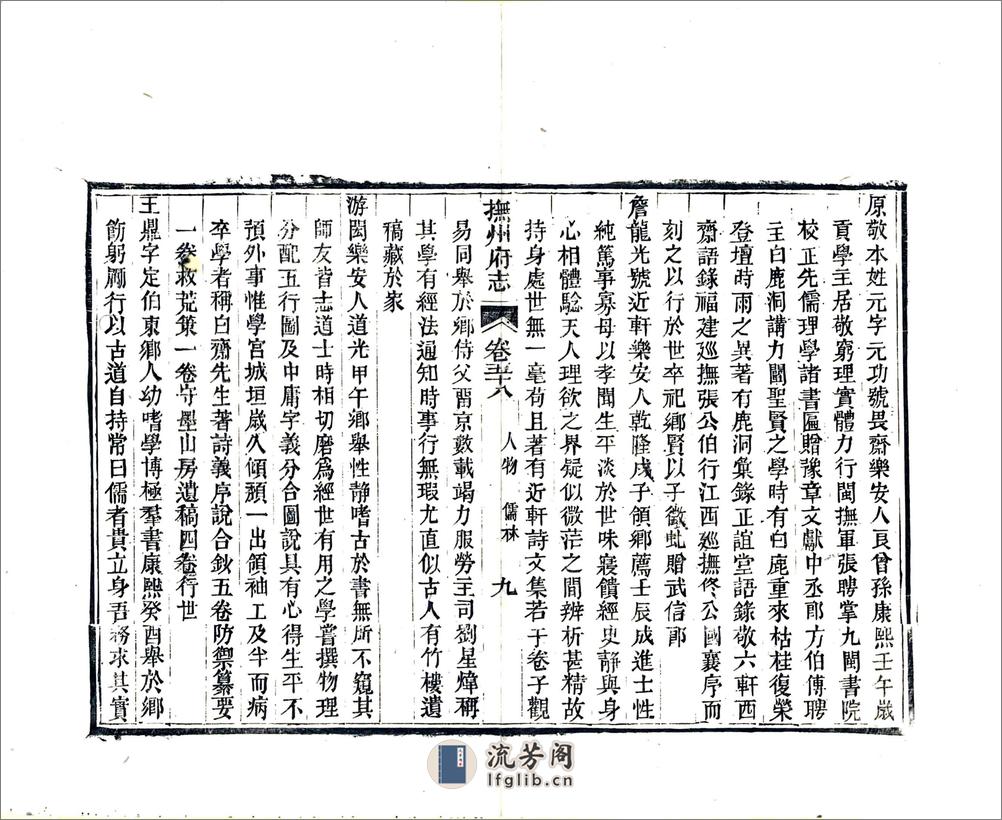 原敬本姓元字元功號畏齋樂安人良曾孫康熙壬午歲
貢學主居敬窮理實體力行閩撫軍張聘掌九閩書院
校正先儒理學諸書匾贈豫章文獻中丞郎方伯傅聘
主白鹿洞講力闡聖賢之學時有白鹿重來枯桂復榮
登壇時雨之異著有鹿洞彙錄正誼堂語錄敬六軒西
齋語錄福建巡撫張公伯行江西廵撫佟公國襄序而
刻之以行於世卒祀鄉賢以子徽虬贈武信郎
詹龍光號近軒樂安人乾隆戊子領鄉薦壬辰成進士性
純篤事寡母以孝聞生平淡於世味寢饋經史靜與身
心相體驗天人理欲之界疑似微茫之間辨析甚精故
持身處世無一毫苟且著有近軒詩文集若干卷子觀
撫州府志 卷五十八 人物 儒林 九
易同舉於鄉侍父畱京數載竭力服勞主司劉星煒稱
其學有經法通知時事行無瑕尤直似古人有竹樓遺
稿藏於家
游閎樂安人道光甲午鄉舉性靜嗜古於書無所不窺其
師友皆志道士時相切磨爲經世有用之學嘗撰物理
分配五行圖及中庸字義分合圖說具有心得生平不
預外事惟學宮城垣歲久傾頹一出領袖工及半而病
卒學者稱白齋先生著詩義序說合鈔五卷防禦纂要
一卷救荒策一卷守墨山房遺稿四卷行世
王鼎字定伯東鄉人幼嗜學博極羣書康熙癸酉舉於鄉
飭躬勵行以古道自持常曰儒者貴立身吾務求其實
流芳阁
lfglib.cn